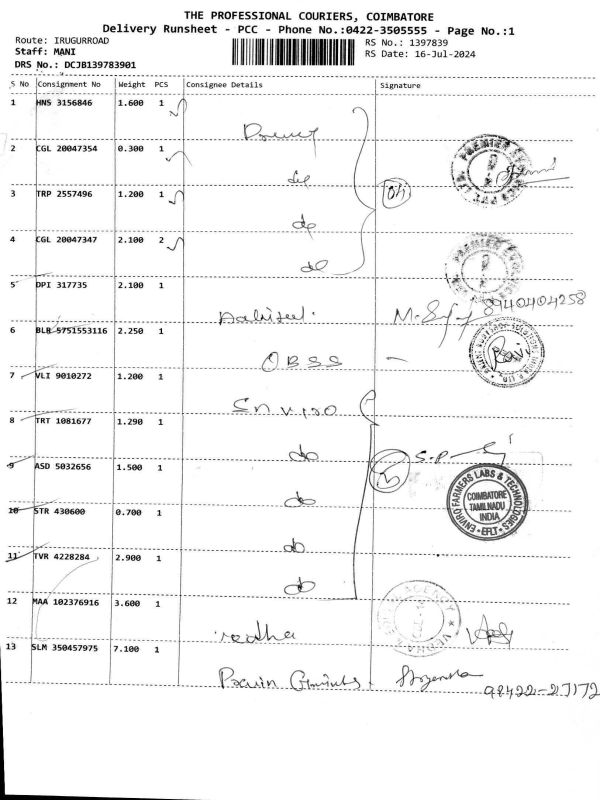 THE PROFESSIONAL COURIERS, COIMBATORE
Delivery Runsheet - PCC - Phone No.:0422-3505555 - Page No.:1
Route: IRUGURROAD
Staff: MANI
DRS No.: DCJB139783901
RS No.: 1397839
RS Date: 16-Jul-2024
S No Consignment No Weight PCS Consignee Details Signature
1 HNS 3156846 1.600 1
2 CGL 20047354 0.300 1
do
3 TRP 2557496 1.200 1
do
4 CGL 20047347 2.100 2
do
5 DPI 317735 2.100 1
8940404258
6 BLR 5751553116 2.250 1
OBSS
7 VLI 9010272 1.200 1
Enviro
8 TRT 1081677 1.290 1
do
9 ASD 5032656 1.500 1
do
ENVIRO FARMERS LABS & TECHNOLOGIES
COIMBATORE
TAMILNADU
INDIA
EFLT
10 STR 430600 0.700 1
do
11 TVR 4228284 2.900 1
do
12 MAA 102376916 3.600 1
13 SLM 350457975 7.100 1
98422-27172